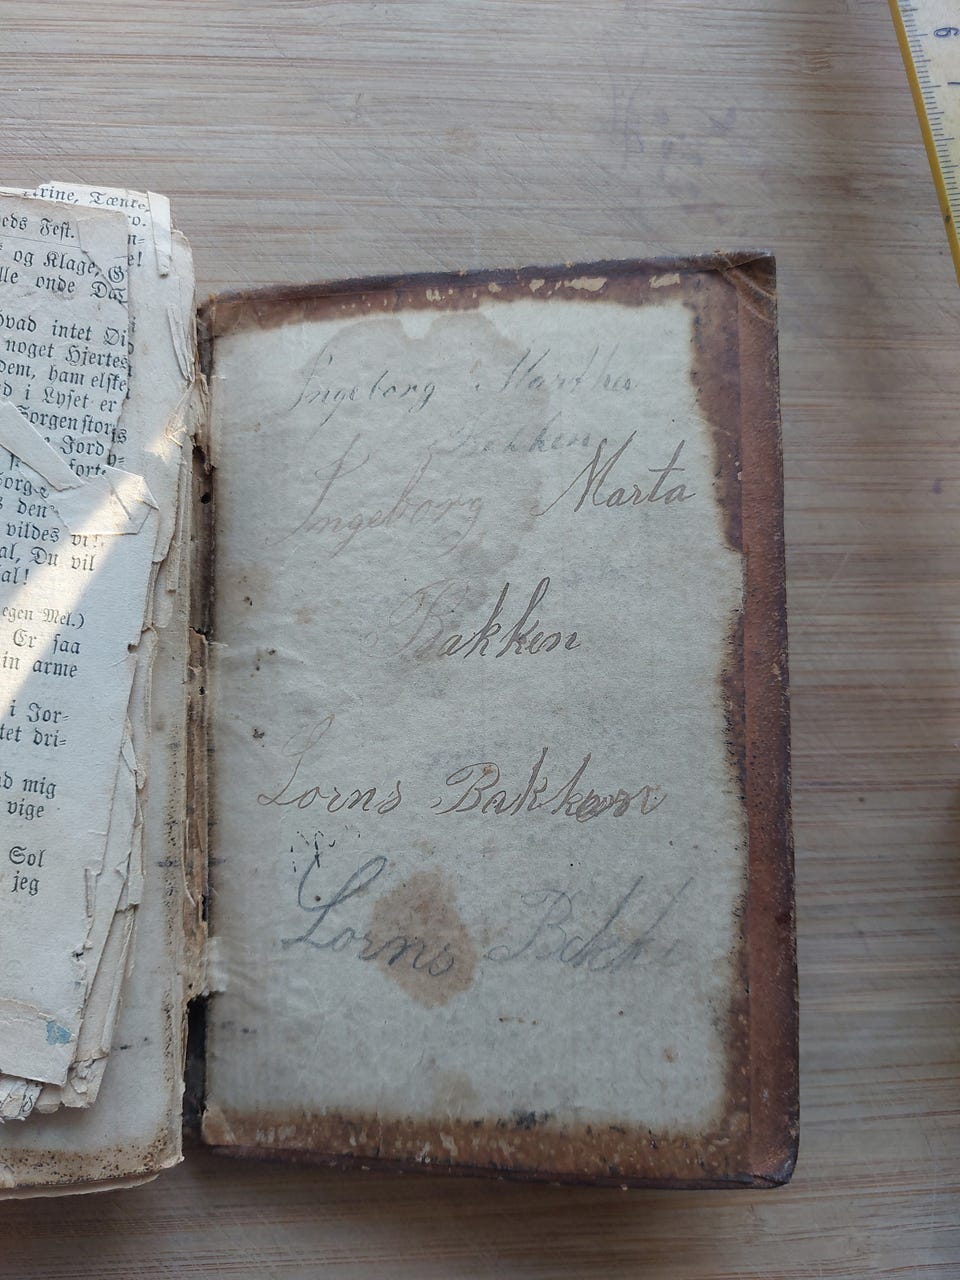 Tænke
eds Fest.
og Klage, G
lle onde Da
hvad intet Di
noget Hjertes
dem, ham elske
d i Lyset er
Sorgen stor
Jord
fort
den
vildes vi
al, Du vil
al!
egen Mel.)
Er saa
in arme
i Jor-
tet dri-
d mig
vige
Sol
jeg
Ingeborg Marthe
Bakken
Ingeborg Marta
Bakken
Lorns Bakken
Lorns Bakk
6